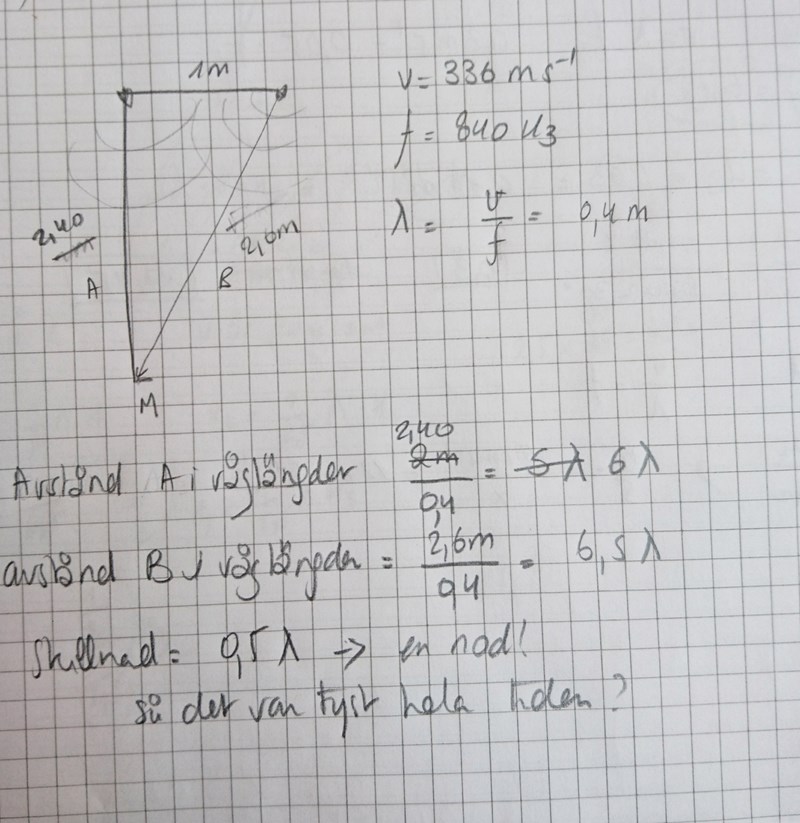 1m
v = 336 ms⁻¹
f = 840 Hz
λ = v/f = 0,4 m
2,40
2,6m
A
B
M
2,40
Avstånd A i våglängder 2m/0,4 = 5λ 6λ
avstånd B i våglängder = 2,6m/0,4 = 6,5 λ
Skillnad = 0,5 λ → en nod!
så det var tyst hela tiden?